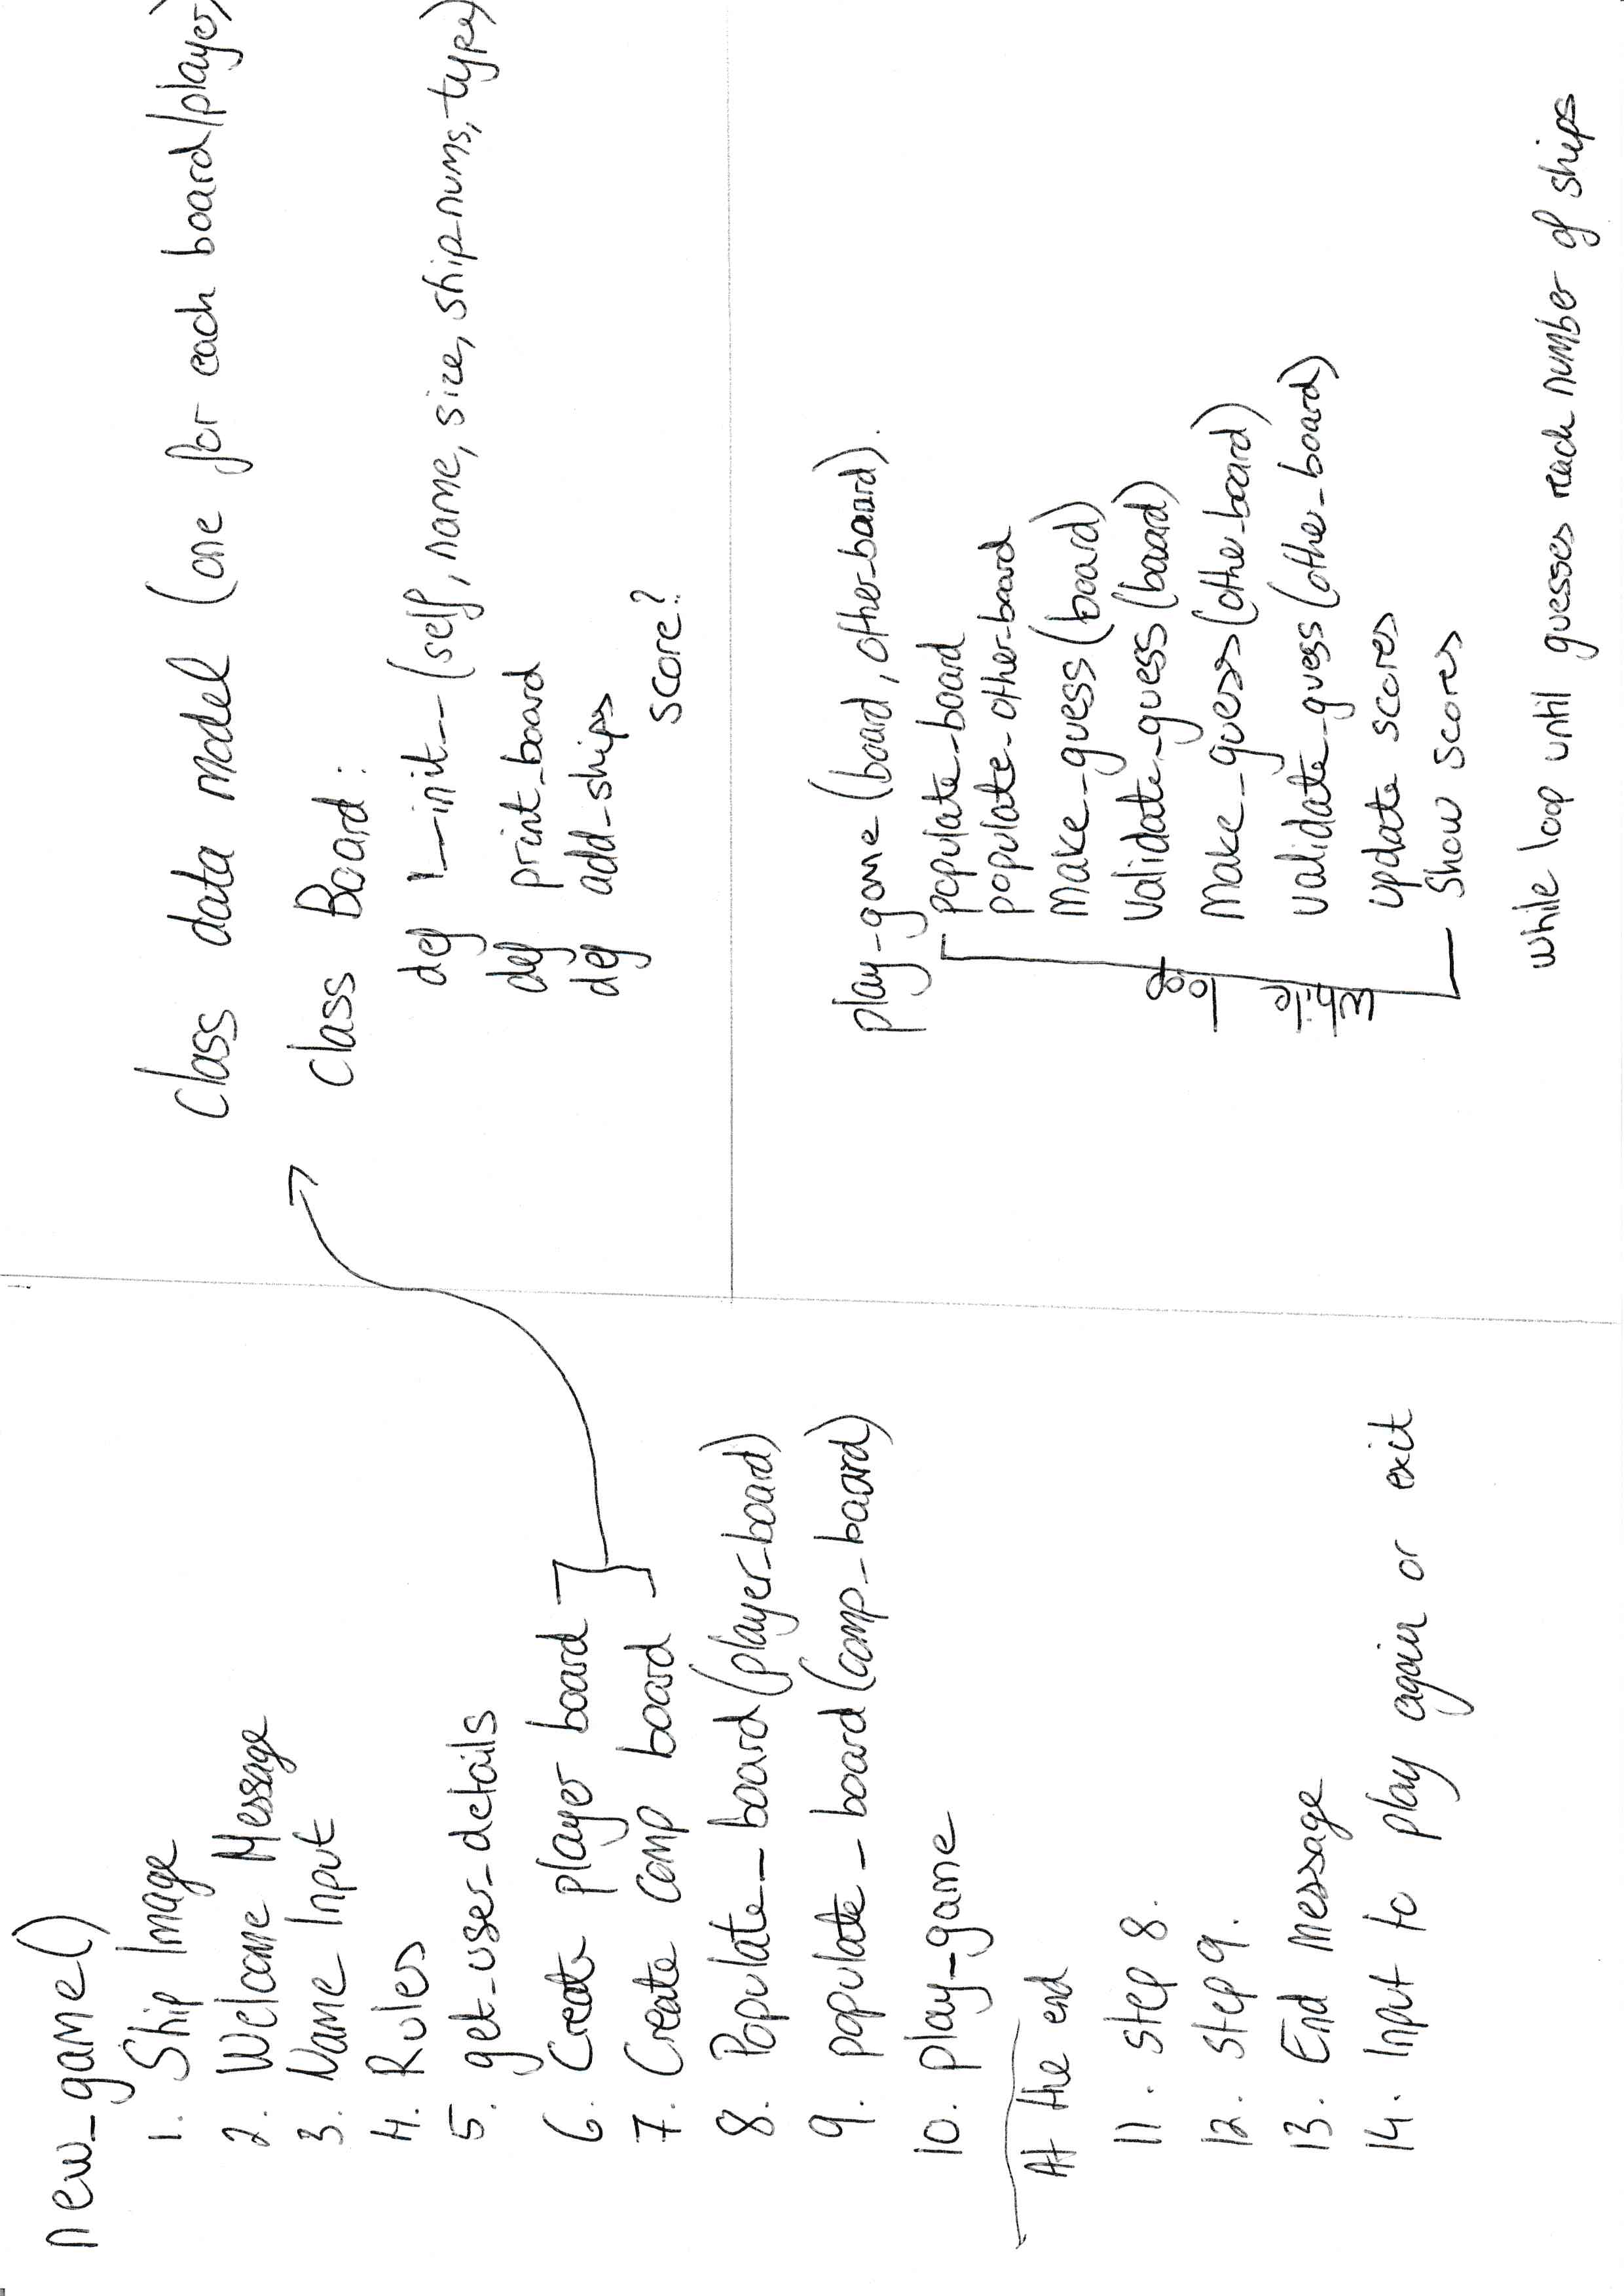 new_game()
1. Ship Image
2. Welcome Message
3. Name Input
4. Rules
5. get_user_details
6. Create player board
7. Create comp board
8. Populate_board(player_board)
9. populate_board(comp_board)
10. play_game
At the end
11. step 8.
12. step 9.
13. End message
14. Input to play again or exit
Class data model (one for each board/player)
Class Board:
def __init__(self, name, size, ship_nums, type)
def print_board
def add_ships
score?
play_game(board, other_board).
populate_board
populate_other_board
Make_guess(board)
Validate_guess(board)
Make_guess(other_board)
Validate_guess(other_board)
update scores
Show scores
while
loop
while loop until guesses reach number of ships